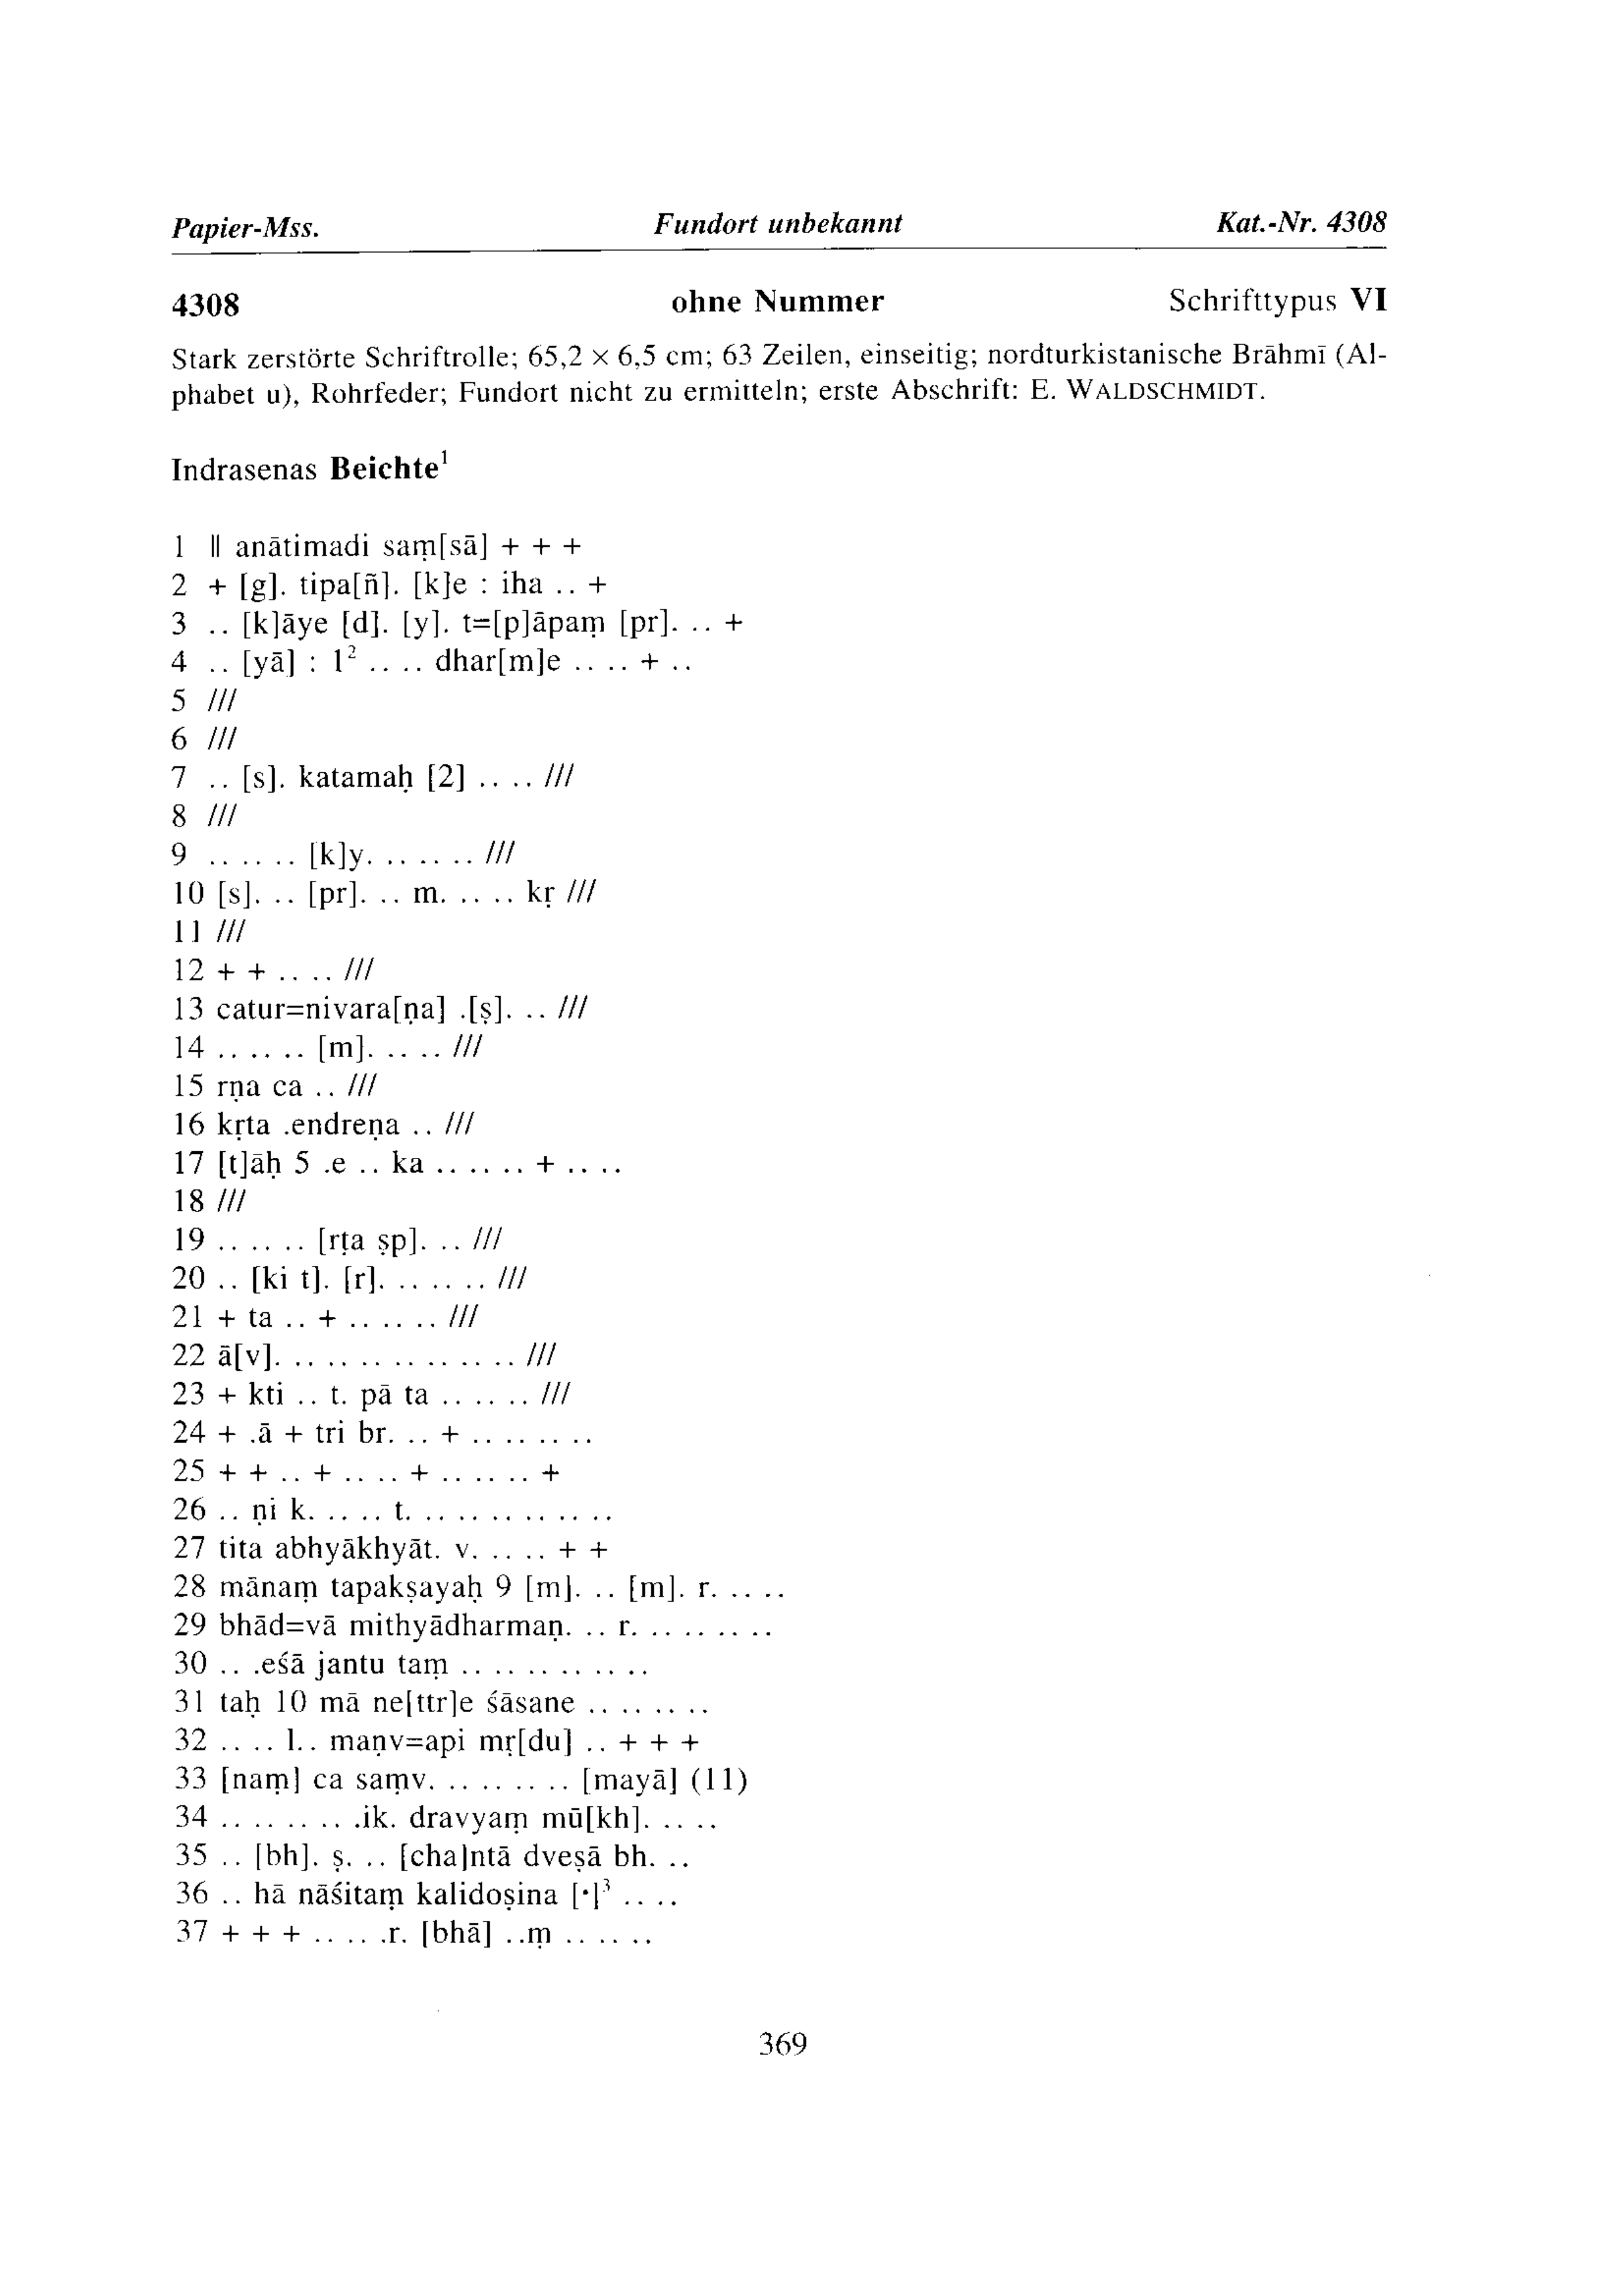 Papier-Mss. Fundort unbekannt Kat.-Nr. 4308
4308 ohne Nummer Schrifttypus VI
Stark zerstörte Schriftrolle; 65,2 × 6,5 cm; 63 Zeilen, einseitig; nordturkistanische Brāhmī (Al-
phabet u), Rohrfeder; Fundort nicht zu ermitteln; erste Abschrift: E. WALDSCHMIDT.
Indrasenas Beichte¹
1 || anātimadi saṃ[sā] + + +
2 + [g]. tipa[ñ]. [k]e : iha .. +
3 .. [k]āye [d]. [y]. t=[p]āpaṃ [pr]. .. +
4 .. [yā] : 1² .. .. dhar[m]e .. .. + ..
5 ///
6 ///
7 .. [s]. katamaḥ [2] .. .. ///
8 ///
9 .. .. .. [k]y. .. .. .. ///
10 [s]. .. [pr]. .. m. .. .. kṛ ///
11 ///
12 + + .. .. ///
13 catur=nivara[ṇa] .[ṣ]. .. ///
14 .. .. .. [m]. .. .. ///
15 rṇa ca .. ///
16 kṛta .endreṇa .. ///
17 [t]āḥ 5 .e .. ka .. .. .. + .. ..
18 ///
19 .. .. .. [rṭa ṣp]. .. ///
20 .. [ki t]. [r]. .. .. .. ///
21 + ta .. + .. .. .. ///
22 ā[v]. .. .. .. .. .. .. .. ///
23 + kti .. t. pā ta .. .. .. ///
24 + .ā + tri br. .. + .. .. .. ..
25 + + .. + .. .. + .. .. .. +
26 .. ṇi k. .. .. t. .. .. .. .. .. ..
27 tita abhyākhyāt. v. .. .. + +
28 mānaṃ tapakṣayaḥ 9 [m]. .. [m]. r. .. ..
29 bhād=vā mithyādharmaṇ. .. r. .. .. .. ..
30 .. .eśā jantu taṃ .. .. .. .. .. ..
31 taḥ 10 mā ne[ttr]e śāsane .. .. .. ..
32 .. .. l.. maṇv=api mṛ[du] .. + + +
33 [naṃ] ca saṃv. .. .. .. .. [mayā] (11)
34 .. .. .. .. .ik. dravyaṃ mū[kh]. .. ..
35 .. [bh]. ṣ. .. [cha]ntā dveṣā bh. ..
36 .. hā nāśitaṃ kalidoṣina [·]³ .. ..
37 + + + .. .. .r. [bhā] ..ṃ .. .. ..
369